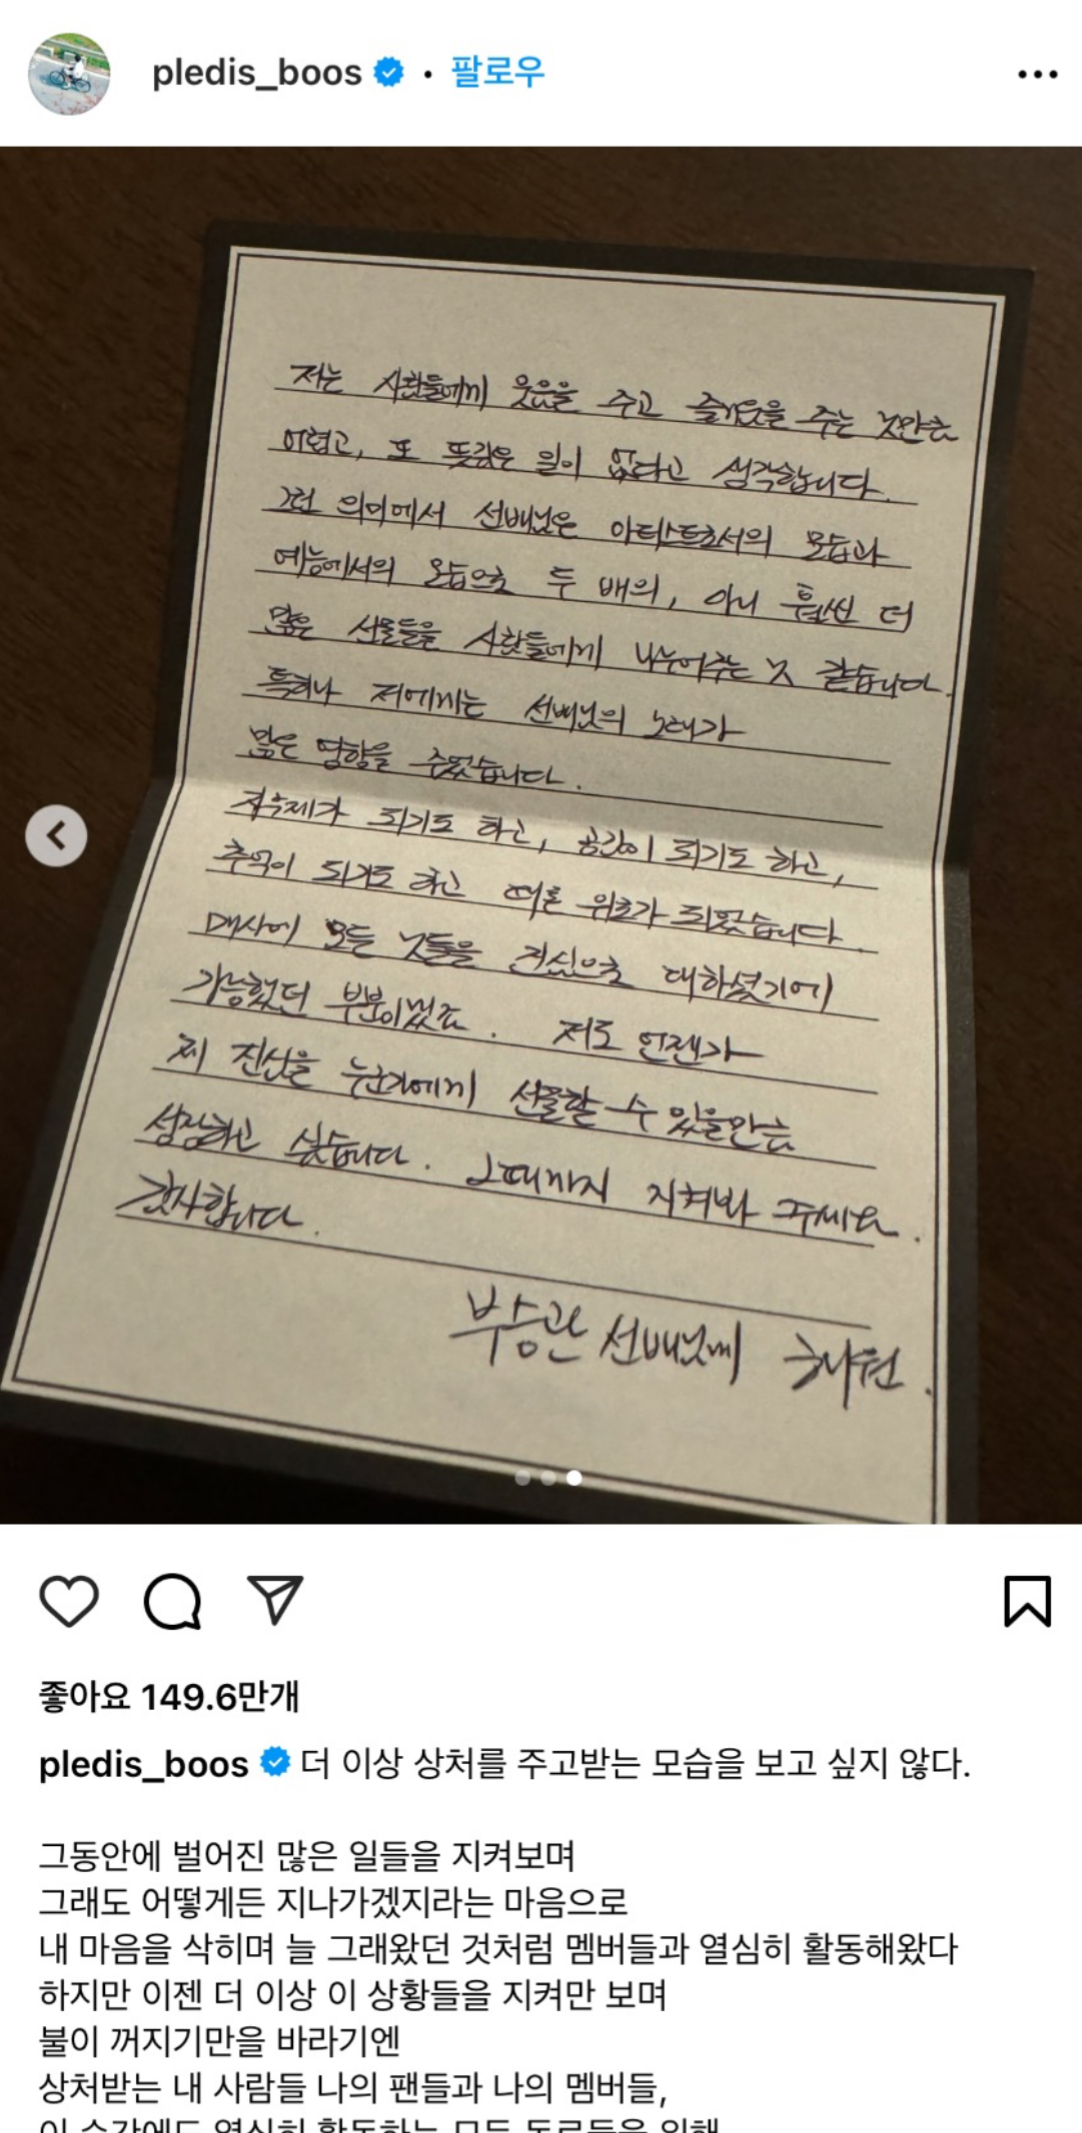 pledis_boos · 팔로우
저는 사람들에게 웃음을 주고 즐거움을 주는 것만큼
어렵고, 또 뜻깊은 일이 없다고 생각합니다.
그런 의미에서 선배님은 아티스트로서의 모습과
예능에서의 모습으로 두 배의, 아니 훨씬 더
많은 선물들을 사람들에게 나누어주는 것 같습니다.
특히나 저에게는 선배님의 노래가
많은 영향을 주었습니다.
자극제가 되기도 하고, 공감이 되기도 하고,
추억이 되기도 하고 때론 위로가 되었습니다.
매사에 모든 것들을 진심으로 대하셨기에
가능했던 부분이겠죠. 저도 언젠가
제 진심을 누군가에게 선물할 수 있을만큼
성장하고 싶습니다. 그때까지 지켜봐 주세요.
감사합니다.
부승관 선배님께
좋아요 149.6만개
pledis_boos 더 이상 상처를 주고받는 모습을 보고 싶지 않다.
그동안에 벌어진 많은 일들을 지켜보며
그래도 어떻게든 지나가겠지라는 마음으로
내 마음을 삭히며 늘 그래왔던 것처럼 멤버들과 열심히 활동해왔다
하지만 이젠 더 이상 이 상황들을 지켜만 보며
불이 꺼지기만을 바라기엔
상처받는 내 사람들 나의 팬들과 나의 멤버들,
이 순간에도 열심히 활동하는 모든 동료들을 위해